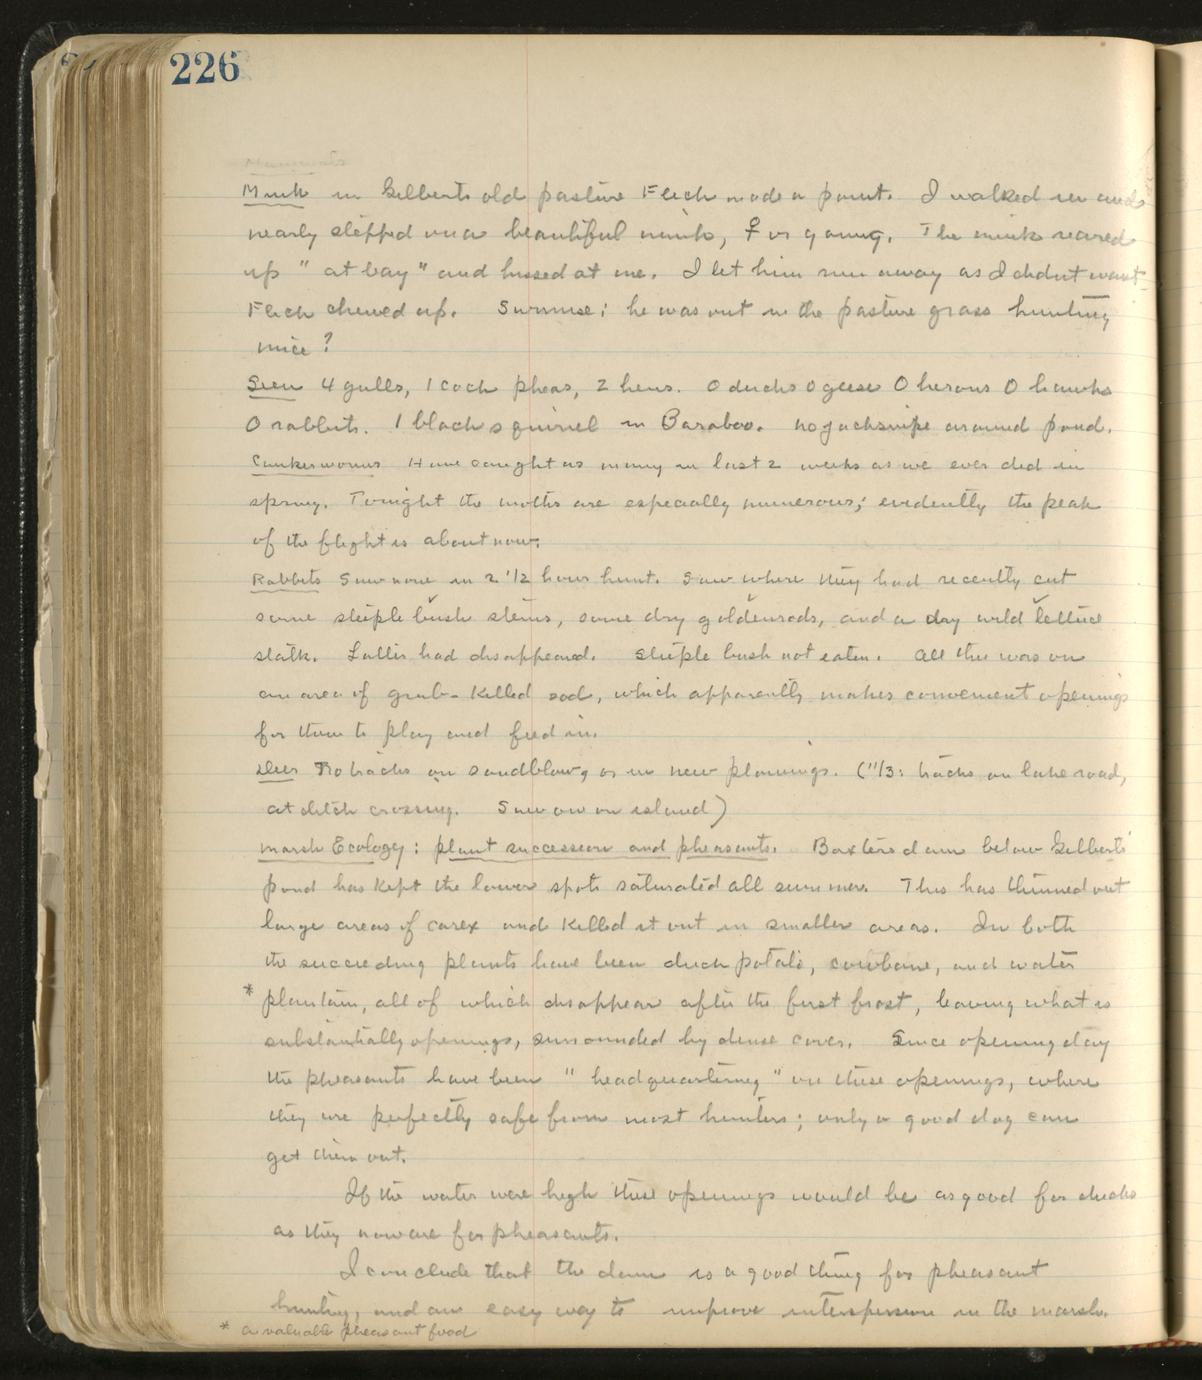 226
Mammals
Mink in Gilberts old pasture Flick made a point. I walked in and
nearly stepped on a beautiful mink, ♀ or young. The mink reared
up "at bay" and hissed at me. I let him run away as I didnt want
Flick chewed up. Surmise: he was out in the pasture grass hunting
mice?
Seen 4 gulls, 1 cock pheas, 2 hens. 0 ducks 0 geese 0 herons 0 hawks
0 rabbits. 1 black squirrel in Baraboo. no jacksnipe around pond.
Cankerworms Have caught as many in last 2 weeks as we ever did in
spring. Tonight the moths are especially numerous; evidently the peak
of the flight is about now.
Rabbits Saw none in 2 1/2 hour hunt. Saw where they had recently cut
some steeple bush stems, some dry goldenrods, and a dry wild lettuce
stalk. Latter had disappeared. Steeple bush not eaten. All this was on
an area of grub-killed sod, which apparently makes convenient openings
for them to play and feed in.
Deer No tracks on sandblow, or in new plantings. (11/3: tracks on lake road,
at ditch crossing. Saw one on island)
Marsh Ecology: plant succession and pheasants. Baxters dam below Gilberts'
pond has kept the lower spots saturated all summer. This has thinned out
large areas of carex and killed it out in smaller areas. In both
the succeeding plants have been duck potato, cowbane, and water
* plantain, all of which disappear after the first frost, leaving what is
substantially openings, surrounded by dense cover. Since opening day
the pheasants have been "headquartering" on these openings, where
they are perfectly safe from most hunters; only a good dog can
get them out.
If the water were high these openings would be as good for ducks
as they now are for pheasants.
I conclude that the dam is a good thing for pheasant
hunting, and an easy way to improve interspersion in the marsh.
* a valuable pheasant food